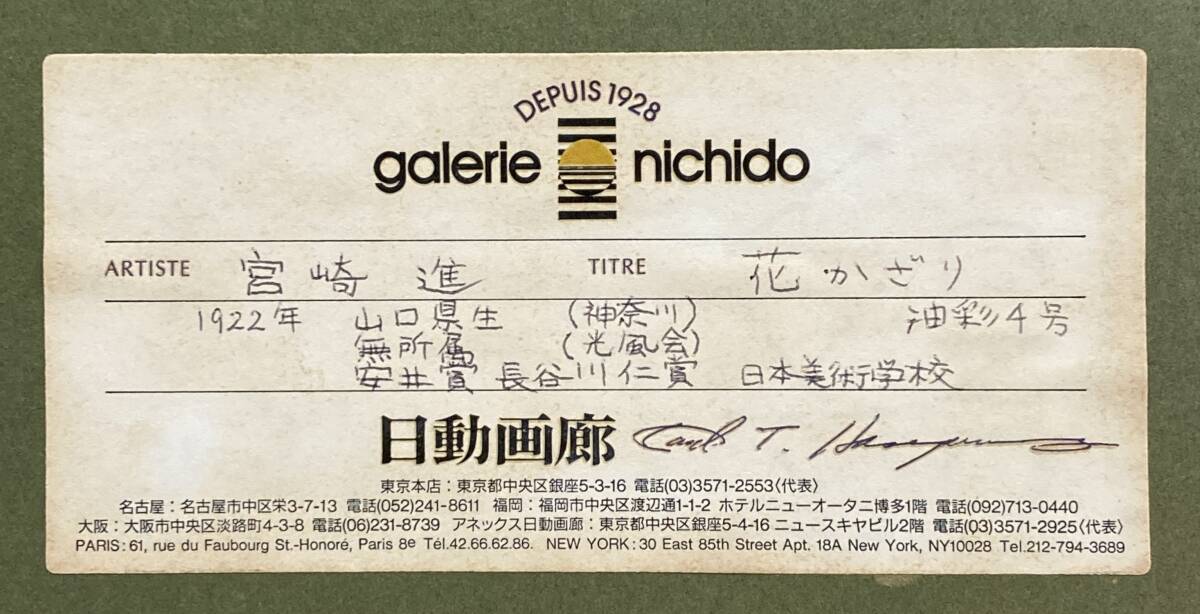 DEPUIS 1928
galerie nichido
ARTISTE 宮崎 進 TITRE 花かざり
1922年 山口県生 (神奈川) 油彩4号
無所属 (光風会)
安井賞 長谷川仁賞 日本美術学校
日動画廊
東京本店：東京都中央区銀座5-3-16 電話(03)3571-2553〈代表〉
名古屋：名古屋市中区栄3-7-13 電話(052)241-8611 福岡：福岡市中央区渡辺通1-1-2 ホテルニューオータニ博多1階 電話(092)713-0440
大阪：大阪市中央区淡路町4-3-8 電話(06)231-8739 アネックス日動画廊：東京都中央区銀座5-4-16 ニュースキヤビル2階 電話(03)3571-2925〈代表〉
PARIS: 61, rue du Faubourg St.-Honoré, Paris 8e Tél.42.66.62.86. NEW YORK: 30 East 85th Street Apt. 18A New York, NY10028 Tel.212-794-3689